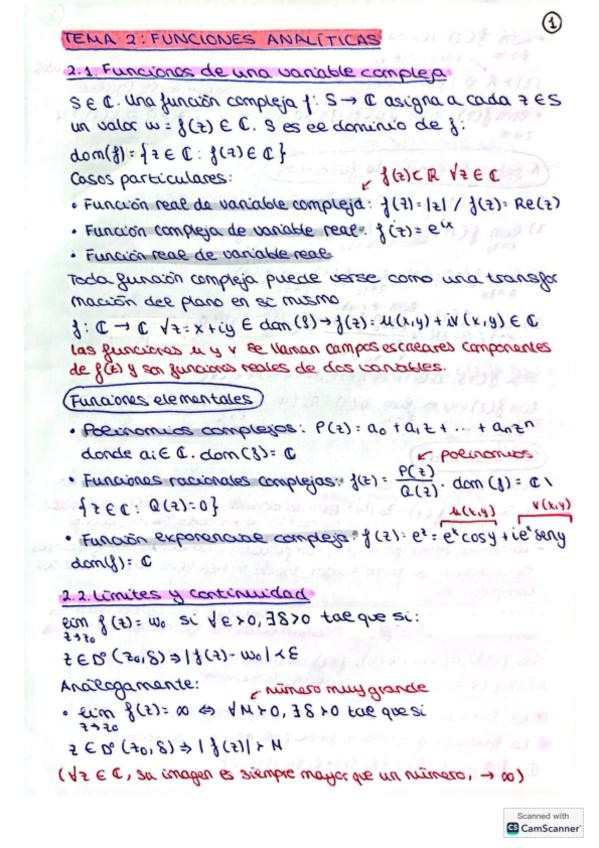 1
TEMA 2: FUNCIONES ANALÍTICAS
2.1. Funciones de una variable compleja
S ∈ ℂ. Una función compleja f: S → ℂ asigna a cada z ∈ S
un valor w = f(z) ∈ ℂ. S es el dominio de f:
dom(f) = {z ∈ ℂ : f(z) ∈ ℂ}
Casos particulares:
↙ f(z) ⊂ ℝ ∀z ∈ ℂ
• Función real de variable compleja: f(z) = |z| / f(z) = Re(z)
• Función compleja de variable real: f(x) = e^ix
• Función real de variable real
Toda función compleja puede verse como una transfor
mación del plano en sí mismo
f: ℂ → ℂ ∀z = x + iy ∈ dom(f) → f(z) = u(x,y) + iv(x,y) ∈ ℂ.
Las funciones u y v se llaman campos escalares componentes
de f(z) y son funciones reales de dos variables.
Funciones elementales
• Polinomios complejos: P(z) = a₀ + a₁z + ... + aₙzⁿ
donde ai ∈ ℂ. dom(f) = ℂ
↙ polinomios
• Funciones racionales complejas: f(z) = P(z)/Q(z). dom(f) = ℂ \
{z ∈ ℂ : Q(z) = 0}
u(x,y) v(x,y)
• Función exponencial compleja: f(z) = e^z = e^x cos y + i e^x sen y
dom(f) = ℂ
2.2. Límites y continuidad
lim z→z₀ f(z) = w₀ si ∀ε > 0, ∃δ > 0 tal que si:
z ∈ D°(z₀, δ) ⇒ |f(z) - w₀| < ε
Análogamente:
↙ número muy grande
• lim z→z₀ f(z) = ∞ ⇔ ∀M > 0, ∃δ > 0 tal que si
z ∈ D°(z₀, δ) ⇒ |f(z)| > M
(∀z ∈ ℂ, su imagen es siempre mayor que un número, → ∞)
Scanned with
CS CamScanner